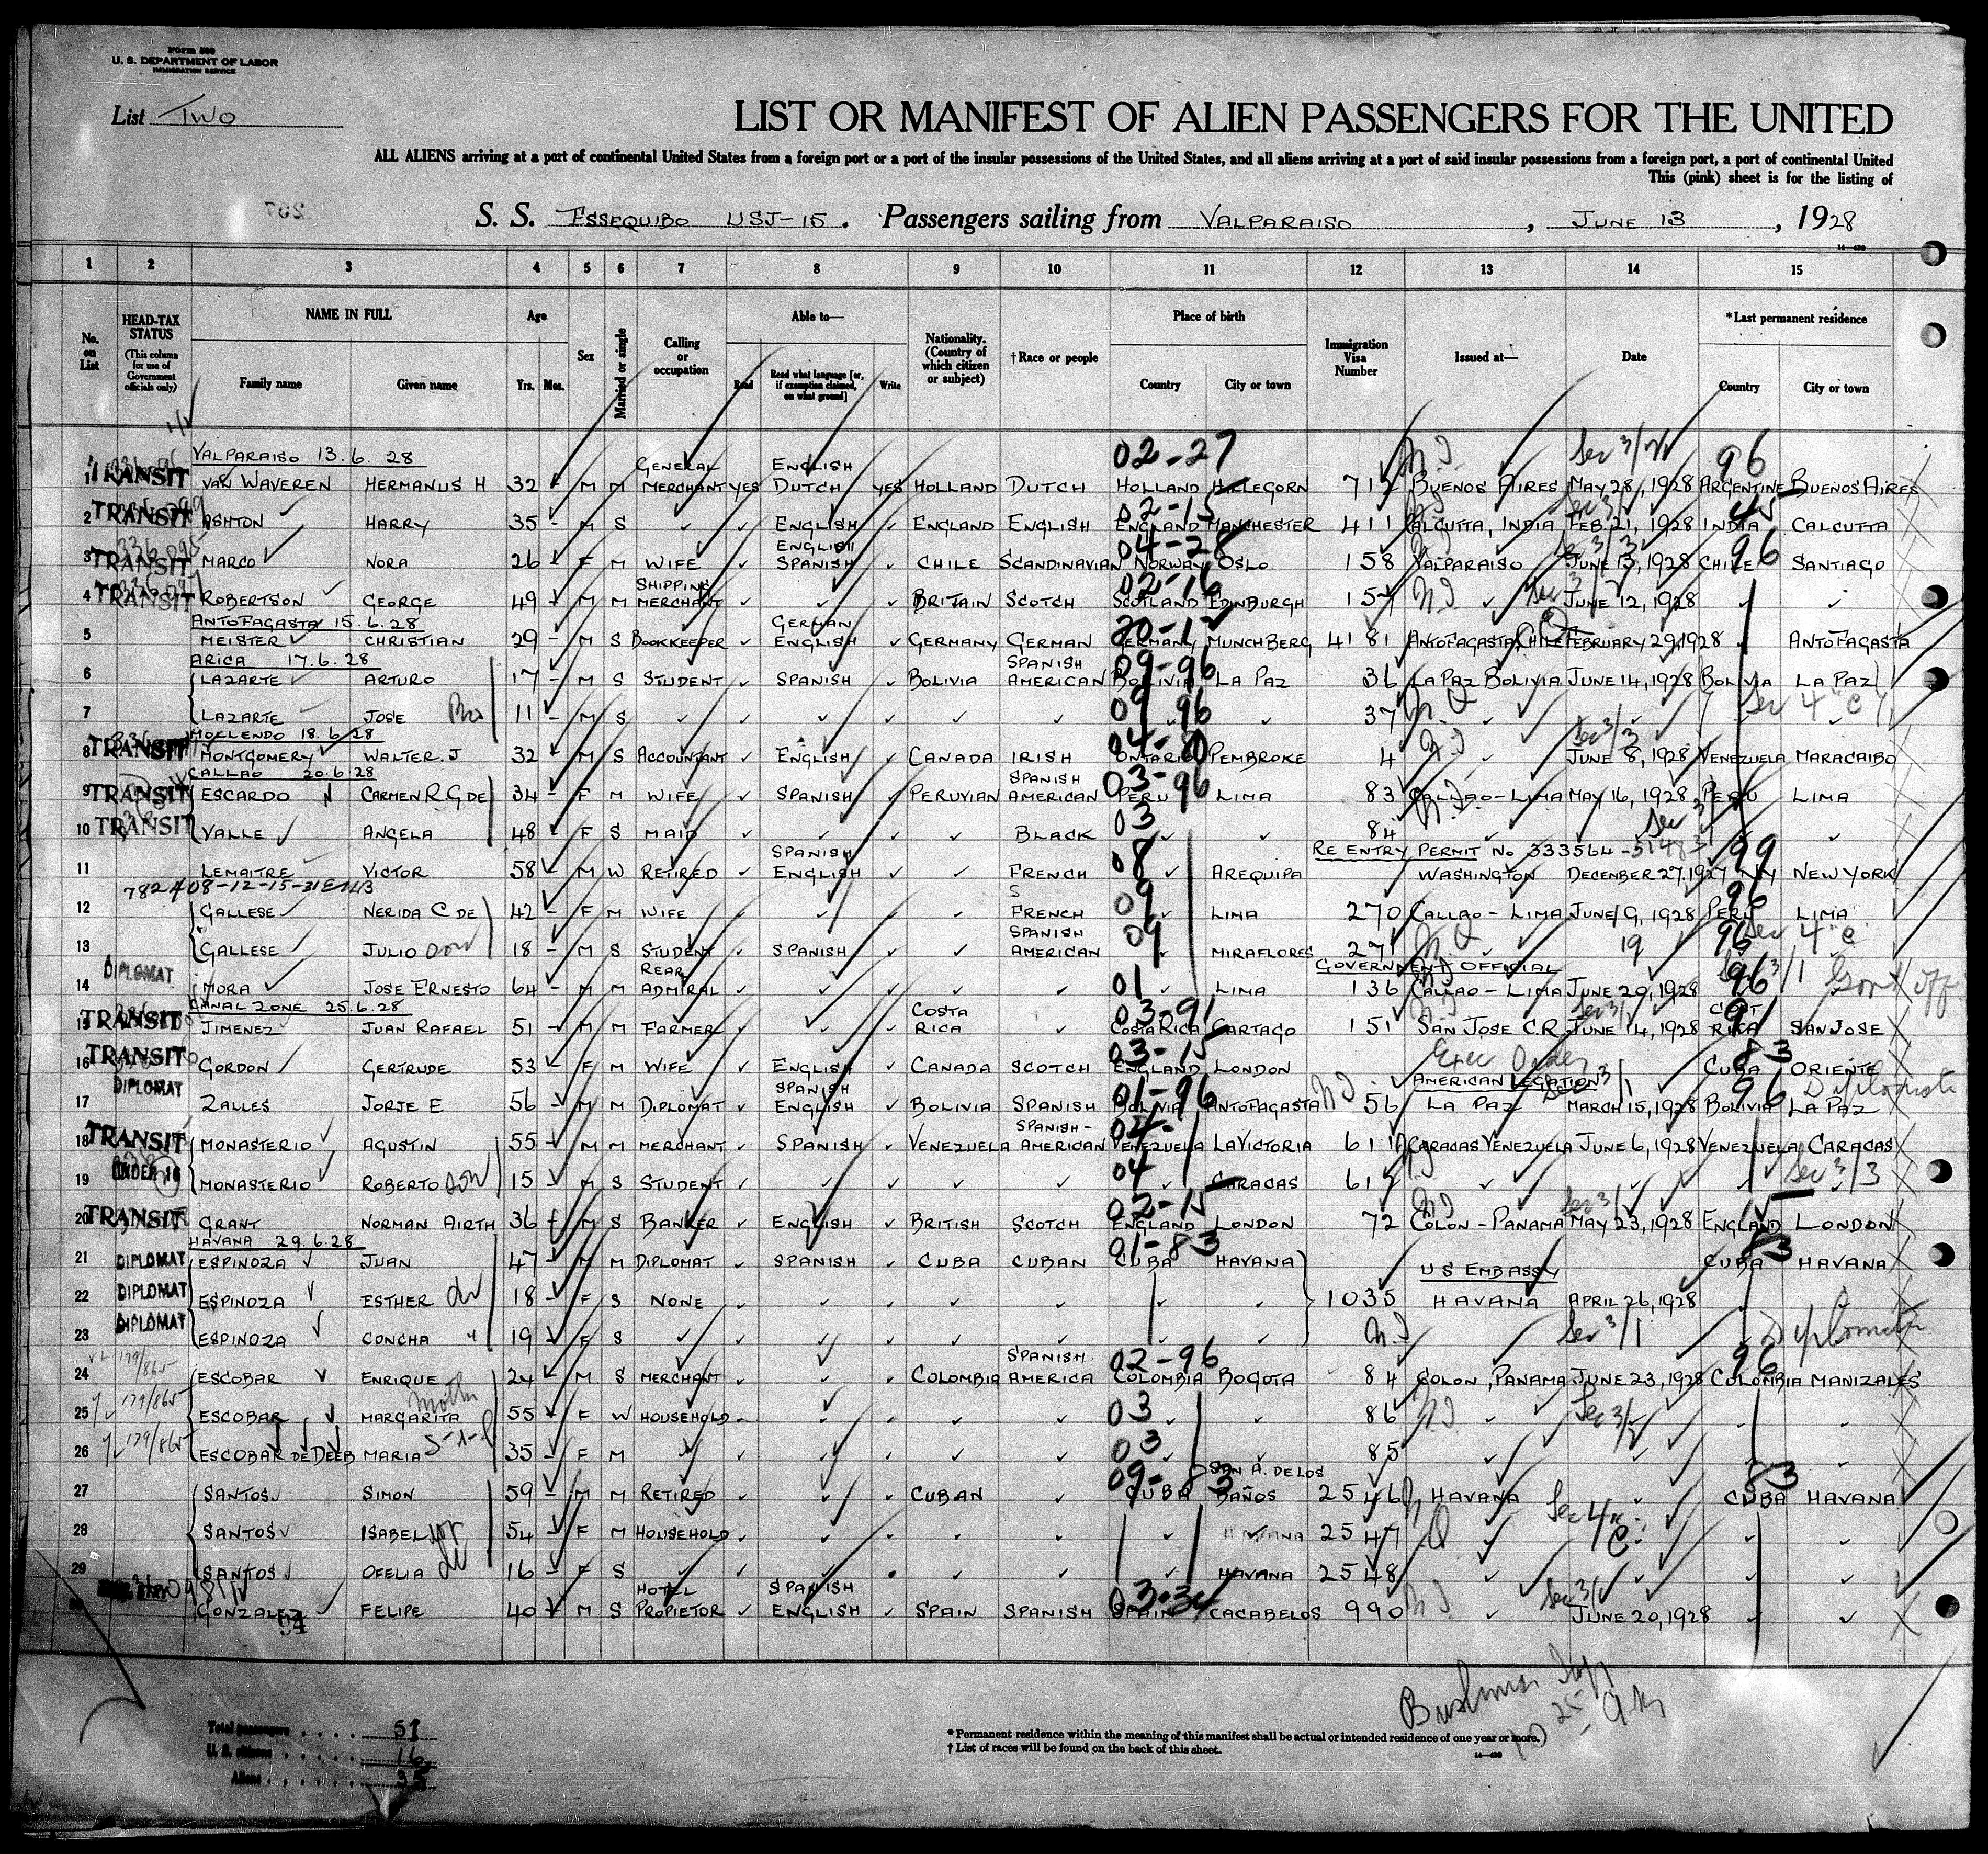 Form 500
U. S. DEPARTMENT OF LABOR
IMMIGRATION SERVICE
List Two
LIST OR MANIFEST OF ALIEN PASSENGERS FOR THE UNITED
ALL ALIENS arriving at a port of continental United States from a foreign port or a port of the insular possessions of the United States, and all aliens arriving at a port of said insular possessions from a foreign port, a port of continental United
This (pink) sheet is for the listing of
S. S. ESSEQUIBO USJ-15. Passengers sailing from VALPARAISO, JUNE 13, 1928
1 2 3 4 5 6 7 8 9 10 11 12 13 14 15
No. on List
HEAD-TAX STATUS (This column for use of Government officials only)
NAME IN FULL Family name Given name
Age Yrs. Mos.
Sex
Married or single
Calling or occupation
Able to— Read Read what language [or, if exemption claimed, on what ground] Write
Nationality. (Country of which citizen or subject)
†Race or people
Place of birth Country City or town
Immigration Visa Number
Issued at—
Date
*Last permanent residence Country City or town
VALPARAISO 13.6.28 02-27 96
1 TRANSIT VAN WAVEREN HERMANUS H 32 M M GENERAL MERCHANT YES ENGLISH DUTCH YES HOLLAND DUTCH HOLLAND HILLEGORN 712 BUENOS AIRES MAY 28, 1928 ARGENTINE BUENOS AIRES
2 TRANSIT ASHTON HARRY 35 - M S ✓ ✓ ENGLISH ✓ ENGLAND ENGLISH 02-15 ENGLAND MANCHESTER 411 CALCUTTA, INDIA FEB. 21, 1928 INDIA 45 CALCUTTA
3 TRANSIT MARCO NORA 26 - F M WIFE ✓ ENGLISH SPANISH ✓ CHILE SCANDINAVIAN 04-28 NORWAY OSLO 158 VALPARAISO JUNE 13, 1928 CHILE 96 SANTIAGO
4 TRANSIT ROBERTSON GEORGE 49 - M M SHIPPING MERCHANT ✓ ✓ ✓ BRITAIN SCOTCH 02-16 SCOTLAND EDINBURGH 157 ✓ JUNE 12, 1928 ✓ ✓
ANTOFAGASTA 15.6.28
5 MEISTER CHRISTIAN 29 - M S BOOKKEEPER ✓ GERMAN ENGLISH ✓ GERMANY GERMAN 20-17 GERMANY MUNCHBERG 4181 ANTOFAGASTA, CHILE FEBRUARY 29, 1928 ✓ ANTOFAGASTA
ARICA 17.6.28
6 LAZARTE ARTURO 17 - M S STUDENT ✓ SPANISH ✓ BOLIVIA SPANISH AMERICAN 09-96 BOLIVIA LA PAZ 36 LA PAZ BOLIVIA JUNE 14, 1928 BOLIVIA LA PAZ
7 LAZARTE JOSE Bro 11 - M S ✓ ✓ ✓ ✓ ✓ ✓ 09-96 ✓ 37 ✓ ✓ Sec 4 "C"
MOLLENDO 18.6.28
8 TRANSIT MONTGOMERY WALTER. J 32 M S ACCOUNTANT ✓ ENGLISH ✓ CANADA IRISH ONTARIO PEMBROKE 4 ✓ Sec 3/3 JUNE 8, 1928 VENEZUELA MARACAIBO
CALLAO 20.6.28
9 TRANSIT ESCARDO CARMEN R. G DE 34 - F M WIFE ✓ SPANISH ✓ PERUVIAN SPANISH AMERICAN 03-96 PERU LIMA 83 CALLAO-LIMA MAY 16, 1928 PERU LIMA
10 TRANSIT VALLE ANGELA 48 F S MAID ✓ ✓ ✓ ✓ BLACK 03 ✓ ✓ 84 ✓ ✓ ✓ ✓
RE ENTRY PERMIT No 333564
11 LEMAITRE VICTOR 58 M W RETIRED ✓ SPANISH ENGLISH ✓ ✓ FRENCH 08 ✓ AREQUIPA WASHINGTON DECEMBER 27, 1927 NY 99 NEW YORK
12 GALLESE NERIDA C DE 42 - F M WIFE ✓ ✓ ✓ ✓ S FRENCH 09 ✓ LIMA 270 CALLAO-LIMA JUNE 19, 1928 PERU 96 LIMA
13 GALLESE JULIO son 18 - M S STUDENT ✓ SPANISH ✓ ✓ SPANISH AMERICAN 09 MIRAFLORES 271 19 96 Sec 4 "C"
GOVERNMENT OFFICIAL
14 DIPLOMAT MORA JOSE ERNESTO 64 - M M REAR ADMIRAL ✓ ✓ ✓ ✓ ✓ 01 LIMA 136 CALLAO-LIMA JUNE 20, 1928 96 Gov't off.
CANAL ZONE 25.6.28
15 TRANSIT JIMENEZ JUAN RAFAEL 51 - M M FARMER ✓ ✓ ✓ COSTA RICA ✓ 03-91 COSTA RICA CARTAGO 151 SAN JOSE C.R. JUNE 14, 1928 RICA 91 SAN JOSE
16 TRANSIT GORDON GERTRUDE 53 - F M WIFE ✓ ENGLISH ✓ CANADA SCOTCH 03-15 ENGLAND LONDON Exec Order CUBA 83 ORIENTE
AMERICAN LEGATION
17 DIPLOMAT ZALLES JORJE E 56 - M M DIPLOMAT ✓ SPANISH ENGLISH ✓ BOLIVIA SPANISH 01-96 BOLIVIA ANTOFAGASTA 56 LA PAZ MARCH 15, 1928 BOLIVIA 96 LA PAZ
18 TRANSIT MONASTERIO AGUSTIN 55 M M MERCHANT ✓ SPANISH ✓ VENEZUELA SPANISH-AMERICAN 04- VENEZUELA LA VICTORIA 611 CARACAS VENEZUELA JUNE 6, 1928 VENEZUELA CARACAS
19 UNDER 16 MONASTERIO ROBERTO son 15 - M S STUDENT ✓ ✓ ✓ ✓ ✓ 04 CARACAS 612 ✓ ✓ ✓ Sec 3/3
20 TRANSIT GRANT NORMAN AIRTH 36 M S BANKER ✓ ENGLISH ✓ BRITISH SCOTCH 02-15 ENGLAND LONDON 72 COLON-PANAMA MAY 23, 1928 ENGLAND 15 LONDON
HAVANA 29.6.28
21 DIPLOMAT ESPINOZA JUAN 47 M M DIPLOMAT ✓ SPANISH ✓ CUBA CUBAN 01-83 CUBA HAVANA CUBA 83 HAVANA
US EMBASSY
22 DIPLOMAT ESPINOZA ESTHER 18 - F S NONE ✓ ✓ ✓ ✓ ✓ ✓ ✓ 1035 HAVANA APRIL 26, 1928
23 DIPLOMAT ESPINOZA CONCHA " 19 F S ✓ ✓ ✓ ✓ ✓ ✓ ✓ ✓ Sec 3/1
24 179/865 ESCOBAR ENRIQUE 24 M S MERCHANT ✓ ✓ ✓ COLOMBIA SPANISH AMERICA 02-96 COLOMBIA BOGOTA 84 COLON, PANAMA JUNE 23, 1928 COLOMBIA 96 MANIZALES
25 179/865 ESCOBAR MARGARITA Mother 55 F W HOUSEHOLD ✓ ✓ ✓ ✓ ✓ 03 ✓ 86 ✓ ✓ ✓
26 179/865 ESCOBAR DE DEEB MARIA S-i-l 35 - F M ✓ ✓ ✓ ✓ ✓ ✓ 03 ✓ 85 ✓ ✓ ✓ ✓
27 SANTOS SIMON 59 - M M RETIRED ✓ ✓ ✓ CUBAN ✓ 09-83 CUBA SAN A. DE LOS BAÑOS 2546 HAVANA ✓ CUBA 83 HAVANA
28 SANTOS ISABEL 54 F M HOUSEHOLD ✓ ✓ ✓ ✓ ✓ HAVANA 2547 ✓ Sec 4 "C" ✓ ✓
29 SANTOS OFELIA 16 - F S ✓ ✓ ✓ ✓ ✓ ✓ HAVANA 2548 ✓ ✓ ✓ ✓
30 GONZALEZ FELIPE 40 M S HOTEL PROPIETOR ✓ SPANISH ENGLISH ✓ SPAIN SPANISH SPAIN CACABELOS 990 ✓ JUNE 20, 1928 ✓ ✓
Total passengers . . . . 51
U. S. citizens . . . . 16
Aliens . . . . 35
* Permanent residence within the meaning of this manifest shall be actual or intended residence of one year or more.
† List of races will be found on the back of this sheet.